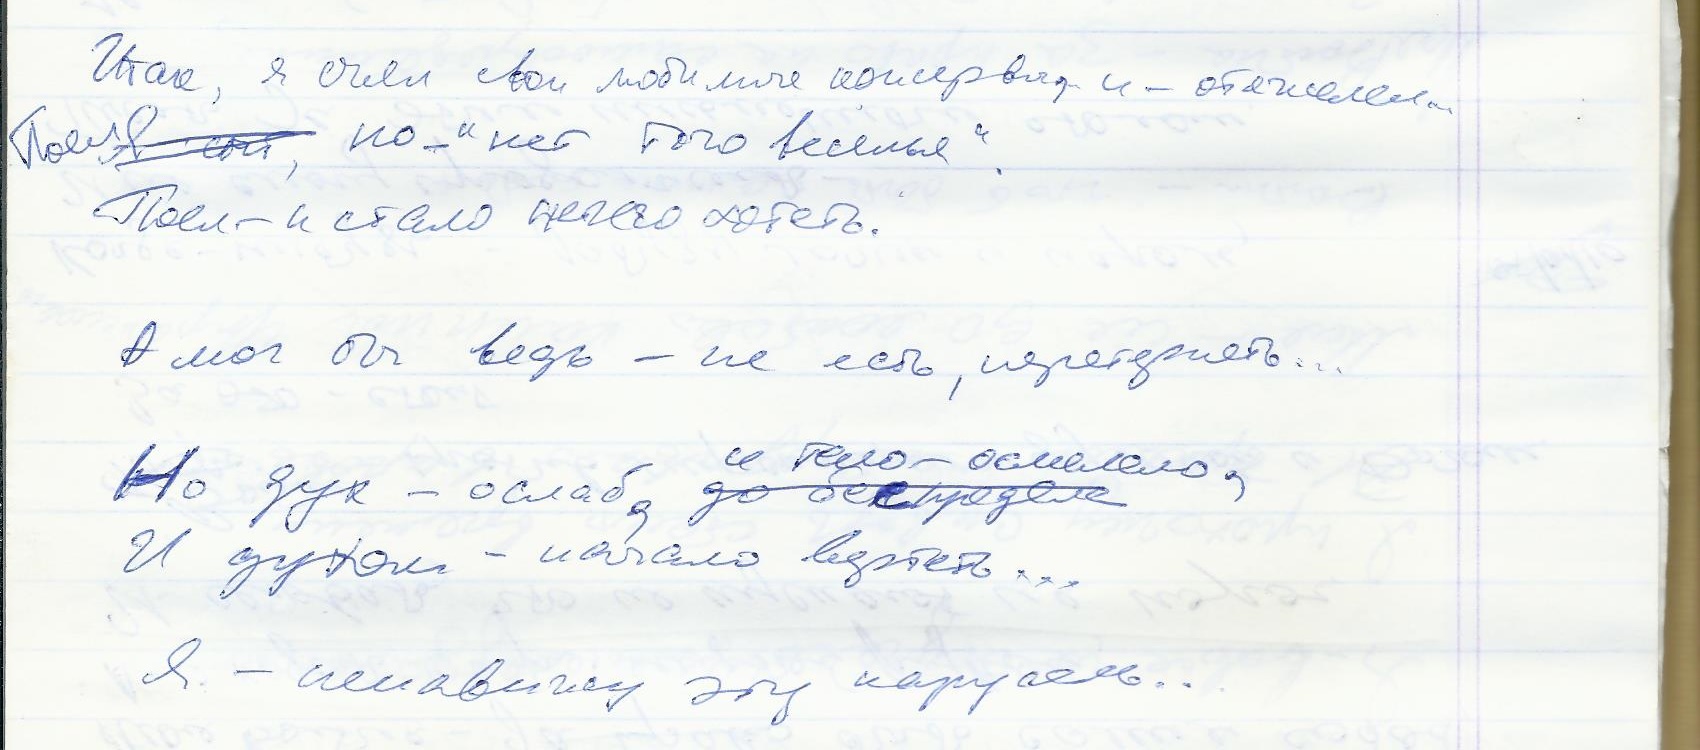 Итак, я съел свои любимые консервы, и – отяжелел...
Поел я, но – "нет того веселья".
Поел – и стало нечего хотеть.
А мог бы ведь – не есть, перетерпеть...
и тело – осмелело,
Но дух – ослаб, до беспредела
И духом – начало вертеть...
Я – ненавижу эту карусель...